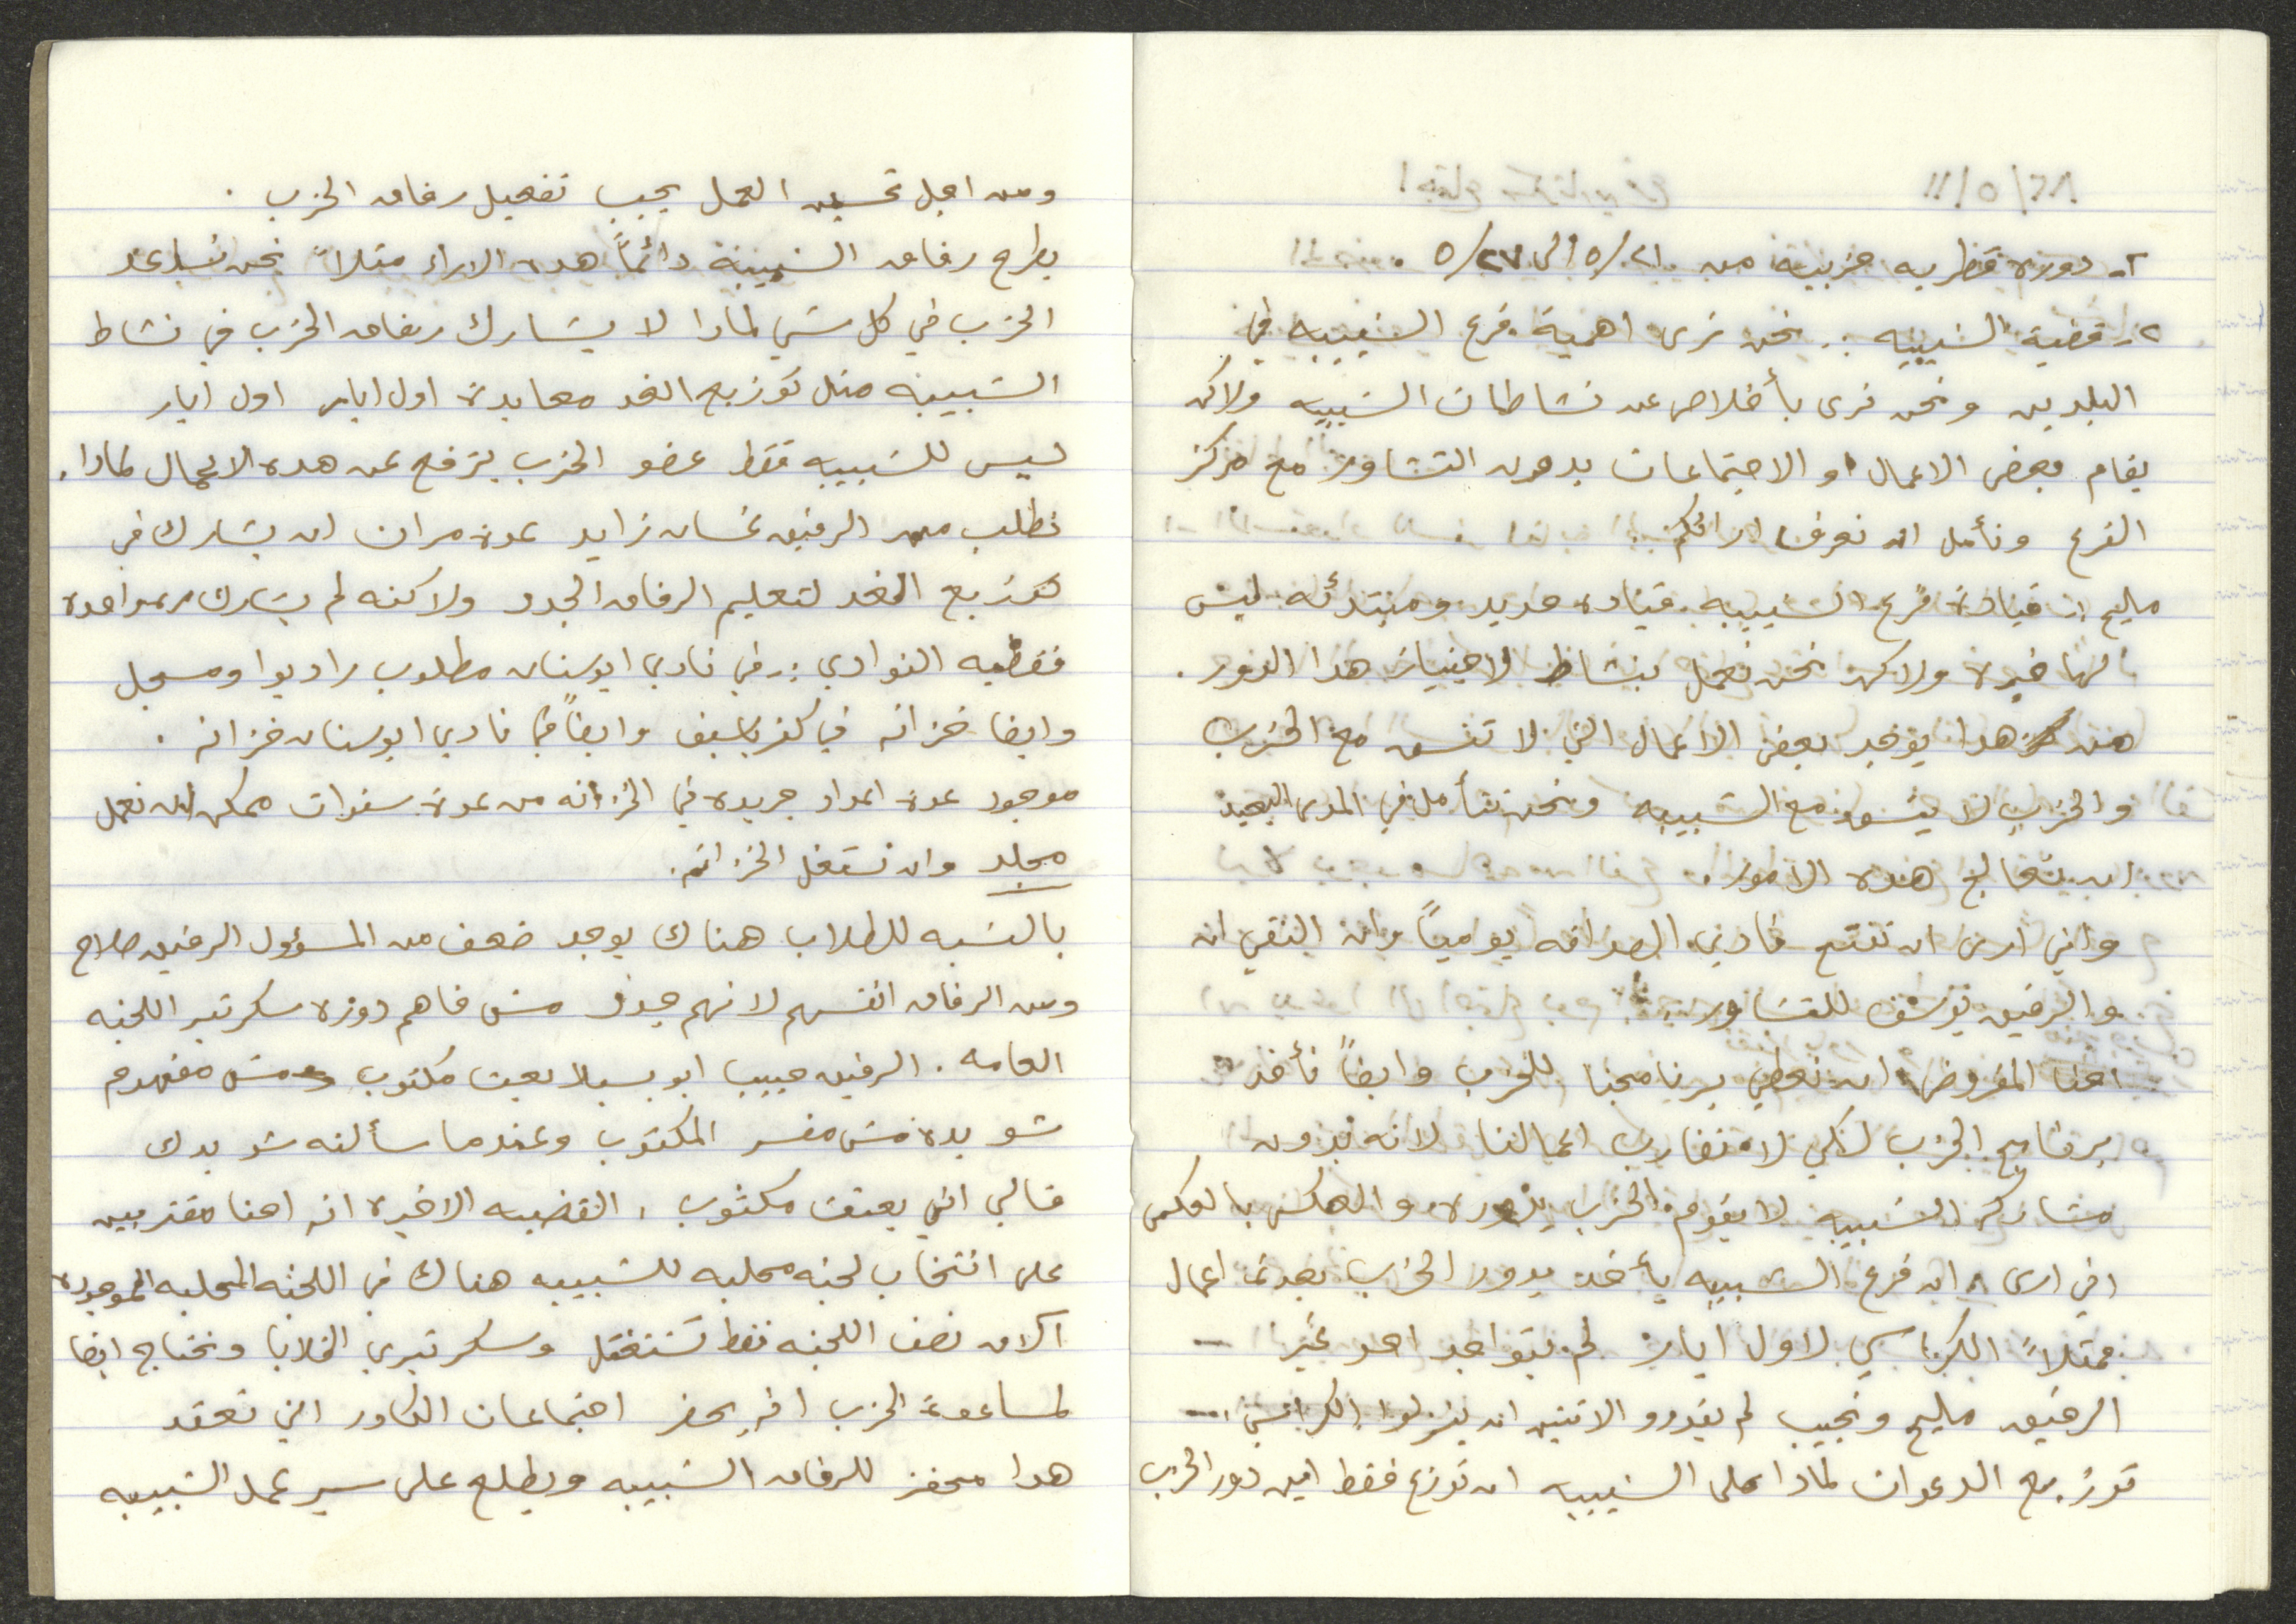 ٢- دورة قطريه حزبيه من ٥/٢١ الى ٥/٢٧ .
٢- قضية الشبيبه :. نحن نرى اهمية فرع الشبيبه في
البلدين ونحن نرى بأخلاص عن نشاطات الشبيبه ولاكن
يقام بعض الاعمال او الاجتماعات بدون التشاور مع مركز
الفرع ونأمل ان نعرف ارائكم .
مليح :. قيادة فرع الشبيبه قياده جديد ومبتدئه ليس
لها خبرة ولاكن نحن نعمل بنشاط لاجتياز هدا الدور .
من هدا يوجد بعض الاعمال التي لا تنسق مع الحزب
والحزب لا ينسق مع الشبيبه ونحن نتأمل في المدى البعيد
ان يتعالج هده الامور .
واني ارى ان نفتح نادي الصداقه يومياً وان التقي انا
والرفيق يوسف للتشاور .
احنا المفروض ان نعطي برنامجنا للحزب وايضاً نأخد
برنامج الحزب لكي لا تتضارب اعمالنا لانه بدون
مشاركة الشبيبه لا يقوم الحزب بدوره والعكس بالعكس
اني ارى ان فرع الشبيبه يأخد بدور الحزب بعدة اعمال
فمثلاً الكراسي لاول ايار لم يتواجد احد غير
الرفيق مليح ونجيب لم يقدرو الاتنين ان ينزلوا الكراسي ...
توزيع الدعوات لمادا على الشبيبه ان توزع فقط اين دور الحزب
ومن اجل تحسين العمل يجب تفعيل رفاق الحزب .
يطرح رفاق الشبيبة دائماً هده الاراء مثلاً نحن نساعد
الحزب في كل شي لمادا لا يشارك رفاق الحزب في نشاط
الشبيبه مثل توزيع الغد معايدة اول ايار اول ايار
ليس للشبيبه فقط عضو الحزب يترفع عن هده الاعمال لمادا .
نطلب من الرفيق غسان زايد عدة مرات ان يشارك في
توزيع الغد لتعليم الرفاق الجدد ولاكنه لم يشارك مره واحده
قضيه النوادي :. في نادي ابوسنان مطلوب راديو ومسجل
وايضا خزانه في كفرياسيف وايضاً في نادي ابوسنان خزانه .
موجود عدة اعداد جريده في الخزانه من عدة سنوات ممكن ان نعمل
مجلد وان نستغل الخزانه .
بالنسبه للطلاب هناك يوجد ضعف من المسؤول الرفيق صلاح
ومن الرفاق انفسهم لانهم جدد مش فاهم دوره سكرتير اللجنه
العامه . الرفيق حبيب ابو بعت مكتوب مش مفهوم
شو بده مش مفسر المكتوب وعندما سألته شو بدك
قالي اني بعتت مكتوب . القضيه الاخيره انه احنا مقتربين
على انتخاب لجنه محليه للشبيبه هناك في اللجنه المحليه الموجوده
الان نصف اللجنه فقط تشتغل وسكرتيري الخلايا ونحتاج ايضا
لمساعدة الحزب انه يحضر اجتماعات الكادر التي تعقد
هدا محفز للرفاق الشبيبه ويطلع على سير عمل الشبيبه